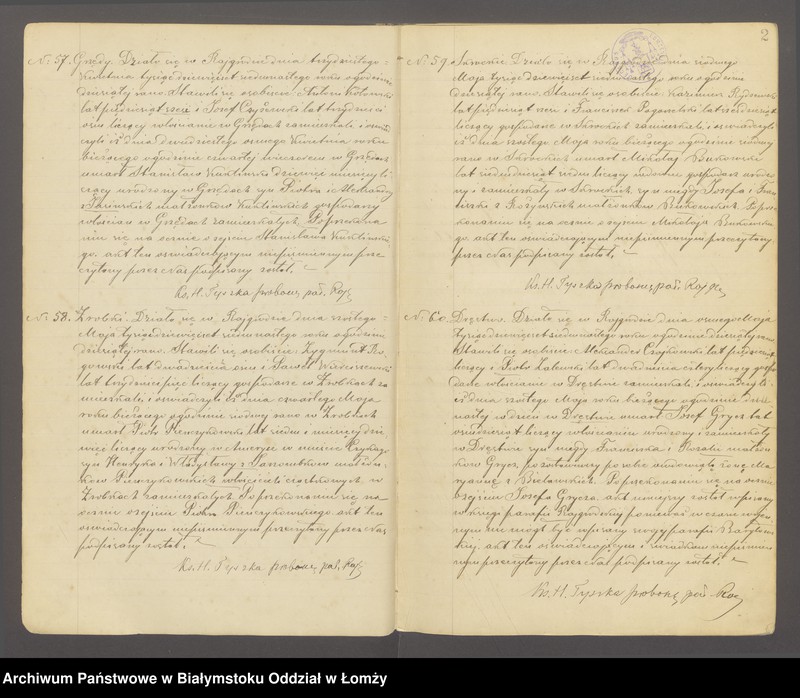 2
N: 57. Grzędy. Działo się w Rajgrodzie dnia trzydziestego
Kwietnia tysiąc dziewięćset siedemnastego roku o godzinie
dziesiątej rano. Stawili się osobiście Antoni
lat pięćdziesiąt i Józef lat trzydzieści
ośm liczący włościanie w Grzędach zamieszkali i oświad
czyli iż dnia dwudziestego ósmego Kwietnia roku
bieżącego o godzinie czwartej wieczorem w Grzędach
umarł Stanisław
czący urodzony w Grzędach syn Piotra i Aleksandry
z małżonków gospodarzy
włościan w Grzędach zamieszkałych. Po przekona
niu się na ocznie o zejściu Stanisława
go. akt ten oświadczającym niepiśmiennym prze
czytany przez Nas podpisany został.
Ks. H. Tyszka proboszcz par. Rajg.
N: 58. Woźna Działo się w Rajgrodzie dnia szóstego
Maja tysiąc dziewięćset siedemnastego roku o godzinie
dziesiątej rano. Stawili się osobiście Zygmunt
lat dwadzieścia i Paweł
lat trzydzieści pięć liczący gospodarze w za
mieszkali, i oświadczyli iż dnia czwartego Maja
roku bieżącego o godzinie rano w
umarł Piotr Pieńczykowski lat siedm i miesięcy dzie
więć liczący urodzony w Ameryce w mieście
syn Henryka i Władysławy z małżon
ków Pieńczykowskich właścicieli cząstkowych w
zamieszkałych. Po przekonaniu się na
ocznie o zejściu Piotra Pieńczykowskiego. akt ten
oświadczającym niepiśmiennym przeczytany przez Nas
podpisany został.
Ks. H. Tyszka proboszcz par. Rajg.
N: 59. Działo się w Rajgrodzie dnia siódmego
Maja tysiąc dziewięćset siedemnastego roku o godzinie
dziesiątej rano. Stawili się osobiście Kazimierz
lat pięćdziesiąt i Franciszek lat sześćdziesiąt
liczący gospodarze w zamieszkali, i oświadczyli
iż dnia szóstego Maja roku bieżącego o godzinie
rano w umarł Mikołaj Bukowski
lat siedmdziesiąt siedm liczący gospodarz urodzo
ny i zamieszkały w syn niegdy Józefa i Fran
ciszki z małżonków Bukowskich. Po prze
konaniu się na ocznie o zejściu Mikołaja Bukowskie
go. akt ten oświadczającym niepiśmiennym przeczytany
przez Nas podpisany został.
Ks. H. Tyszka proboszcz par. Rajg.
N: 60. Dręstwo. Działo się w Rajgrodzie dnia ósmego Maja
tysiąc dziewięćset siedemnastego roku o godzinie dziesiątej rano
Stawili się osobiście Aleksander Czajkowski lat pięćdziesiąt
liczący i Piotr Zalewski lat dwadzieścia cztery liczący gospo
darze włościanie w Dręstwie zamieszkali, i oświadczyli
iż dnia szóstego Maja roku bieżącego o godzinie dwu
nastej w dzień w Dręstwie umarł Józef Gryc lat
osiemdziesiąt liczący włościanin urodzony i zamieszkały
w Dręstwie syn niegdy Franciszka i Rozalii małżon
ków Gryc, pozostawiwszy po sobie owdowiałą żonę Ma
ryannę z Bielawskich. Po przekonaniu się na ocznie
o zejściu Józefa Gryca. akt niniejszy został wpisany
w księgi parafii Rajgrodzkiej ponieważ w czasie
nie mógł być wpisany swojej parafii Bargłow
skiej. akt ten oświadczającym i świadkom niepiśmien
nym przeczytany przez Nas podpisany został.
Ks. H. Tyszka proboszcz par. Rajg.
Archiwum Państwowe w Białymstoku Oddział w Łomży